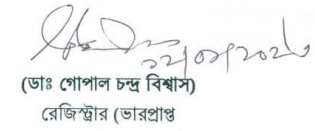 (ডাঃ গোপাল চন্দ্র বিশ্বাস)
রেজিস্ট্রার (ভারপ্রাপ্ত